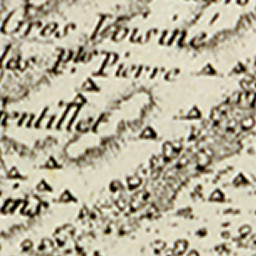 Gros Voisiné
las P.te Pierre
entillet
ins